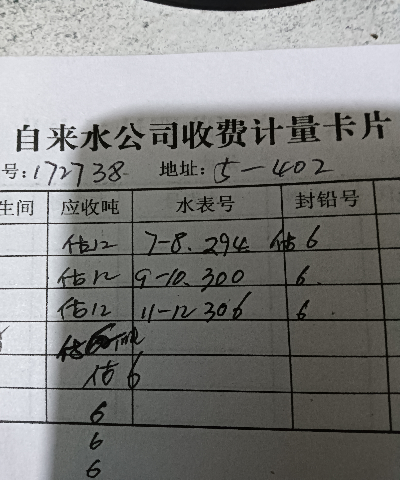 自来水公司收费计量卡片
号:172738 地址:5-402
生间 应收吨 水表号 封铅号
估12 7-8. 294 估6
估12 9-10. 300 6
估12 11-12 306 6
估6
6
6
6